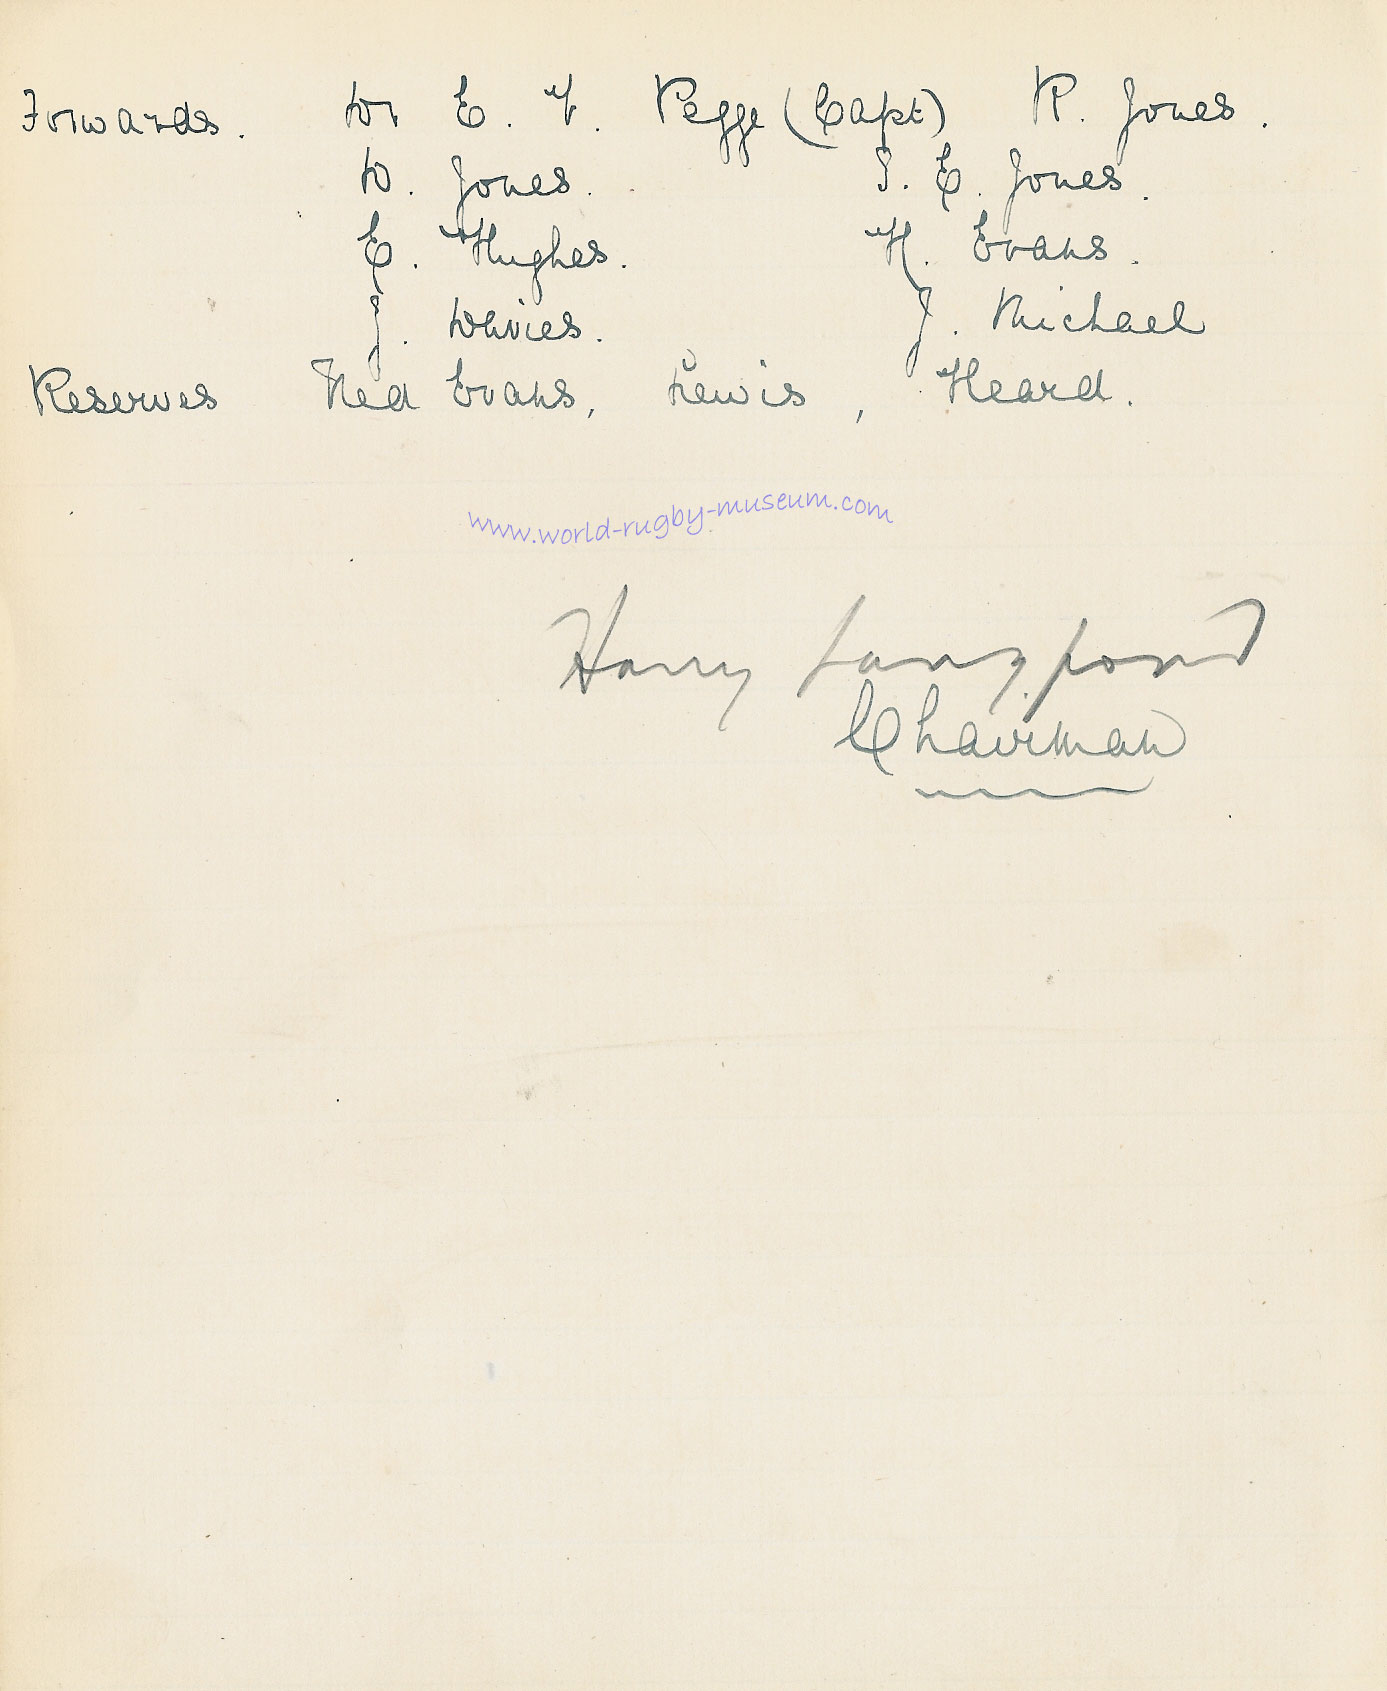 Forwards. Dr E. V. Pegge (Capt) R. Jones.
D. Jones. I. E. Jones.
E. Hughes. H. Evans.
J. Davies. J. Michael
Reserves Ned Evans, Lewis, Heard.
www.world-rugby-museum.com
Harry Langford
Chairman